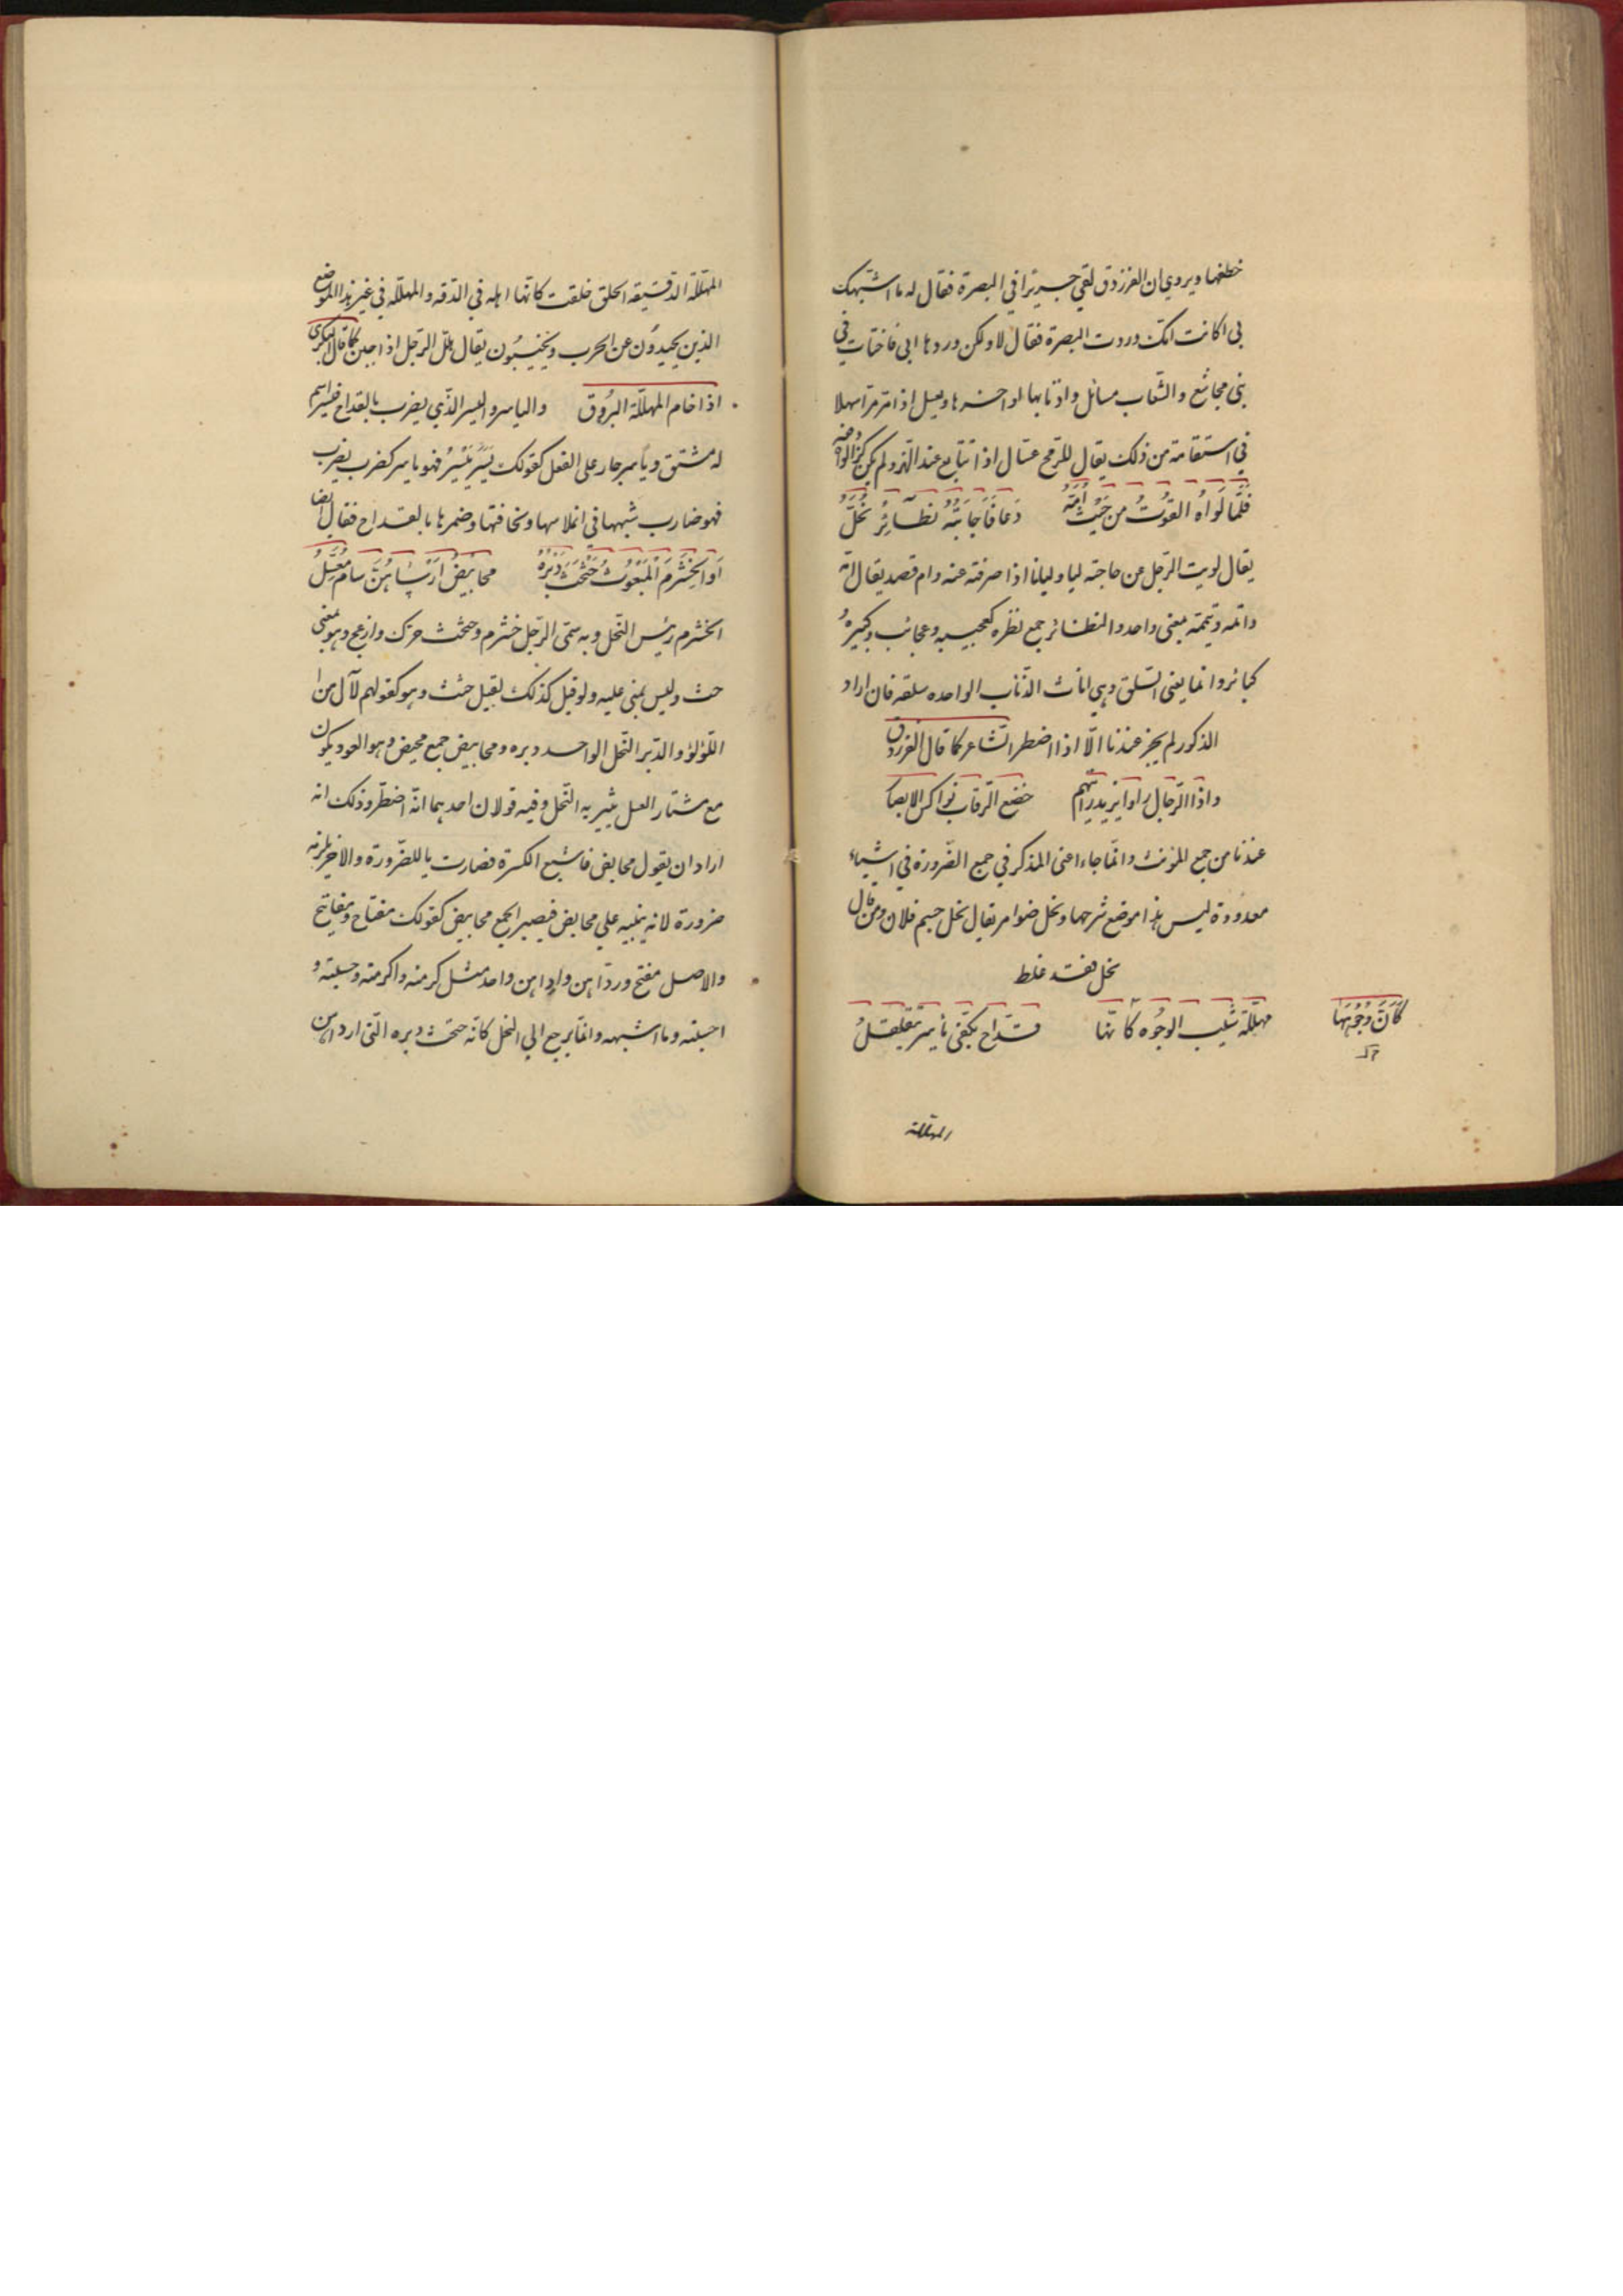 خطفها ويروي ان الفرزدق لقي جريرا في البصرة فقال له ما اشبهك
بى اكانت امّك وردت البصرة فقال لا ولكن وردها ابى فاختات في
بنى مجاشع والشعاب مسائل واذنابها اواخرها ويعسل اذا مر مرا سهلا
في استقامة من ذلك يقال للرمح عسّال اذا تتابع عند الهز ولم يكن
فَلَمَّا لَوَاهُ القُوتُ مِن حَيْثُ اَمَّهُ دَعَا فَاَجَابَتْهُ نَظَائِرُ نُحَّلُ
يقال لويت الرجل عن حاجته ليا وليانا اذا صرفته عنه وام قصد يقال امّه
وامّه وتيممه بمعنى واحد والنظائر جمع نظره كعجيبه وعجائب وكبيره
كبائر وانما يعنى السلق وهي اناث الذئاب الواحده سلقه فان اراد
الذكور لم يجز عندنا الّا اذا اضطر الشاعر كما قال الفرزدق
واذا الرجال راوا يزيد رايتهم خضع الرقاب نواكس الابصار
عندنا من جمع المؤنث وانّما جاء اعنى المذكر في جمع الضرورة في اشياء
معدودة ليس هذا موضع شرحها ونحل ضوامر يقال نحل جسم فلان ومن قال
نحل فقد غلط
مهلّلة شيب الوجُوه كانّها قداح بكفّى ياسر تتقلقلُ
كَانَّ وُجُوهَهَا
المهلّلة
المهلّلة الدقيقه الخلق خلقت كانها اهله في الدقه والمهلله في غير هذا الموضع
الذين يحيدون عن الحرب ويخيبُون يقال هلّل الرجل اذا جبن كما قال البكرى
اذا خام المهلّلة البرُوق والياسر واليسر الّذي يضرب بالقداح فيسر اسم
له مشتق وياسر جار على الفعل كقولك يَسَرَ يَيْسِرُ فهو ياسر كضرب يضرب
فهو ضارب شبهها في انملاسها ونحافتها وضمرها بالقداح فقال ايضا
اَوِ الخَشْرَمُ المَبْعُوثُ حَثْحَثَ دَبْرَهُ محابيضُ اَرْسَاهُنَّ سامٍ مُعَسِّلُ
الخشرم رئيس النحل وبه سمّى الرّجل خشرم وحثحث حرّك وازعج وهو بمعنى
حث وليس بمبنى عليه ولو قيل كذلك لقيل حثث وهو كقولهم لآل من
اللؤلؤ والدبر النحل الواحد دبره ومحابيض جمع محبض وهو العود يكون
مع مشتار العسل يثير به النّحل وفيه قولان احدهما انّه اضطر وذلك انه
اراد ان يقول محابض فاشبع الكسرة فصارت يا للضّرورة والاخر يلزمه
ضرورة لانه يبنيه علي محابض فيصير الجمع محابيض كقولك مفتاح ومفاتيح
والاصل مفتح ورداهن وارداهن واحد مثل كرمته واكرمته وحسبته و
احسبته وما اشبهه وانّما يرجع الي النحل كانّه حثحث دبره التى ارداهن